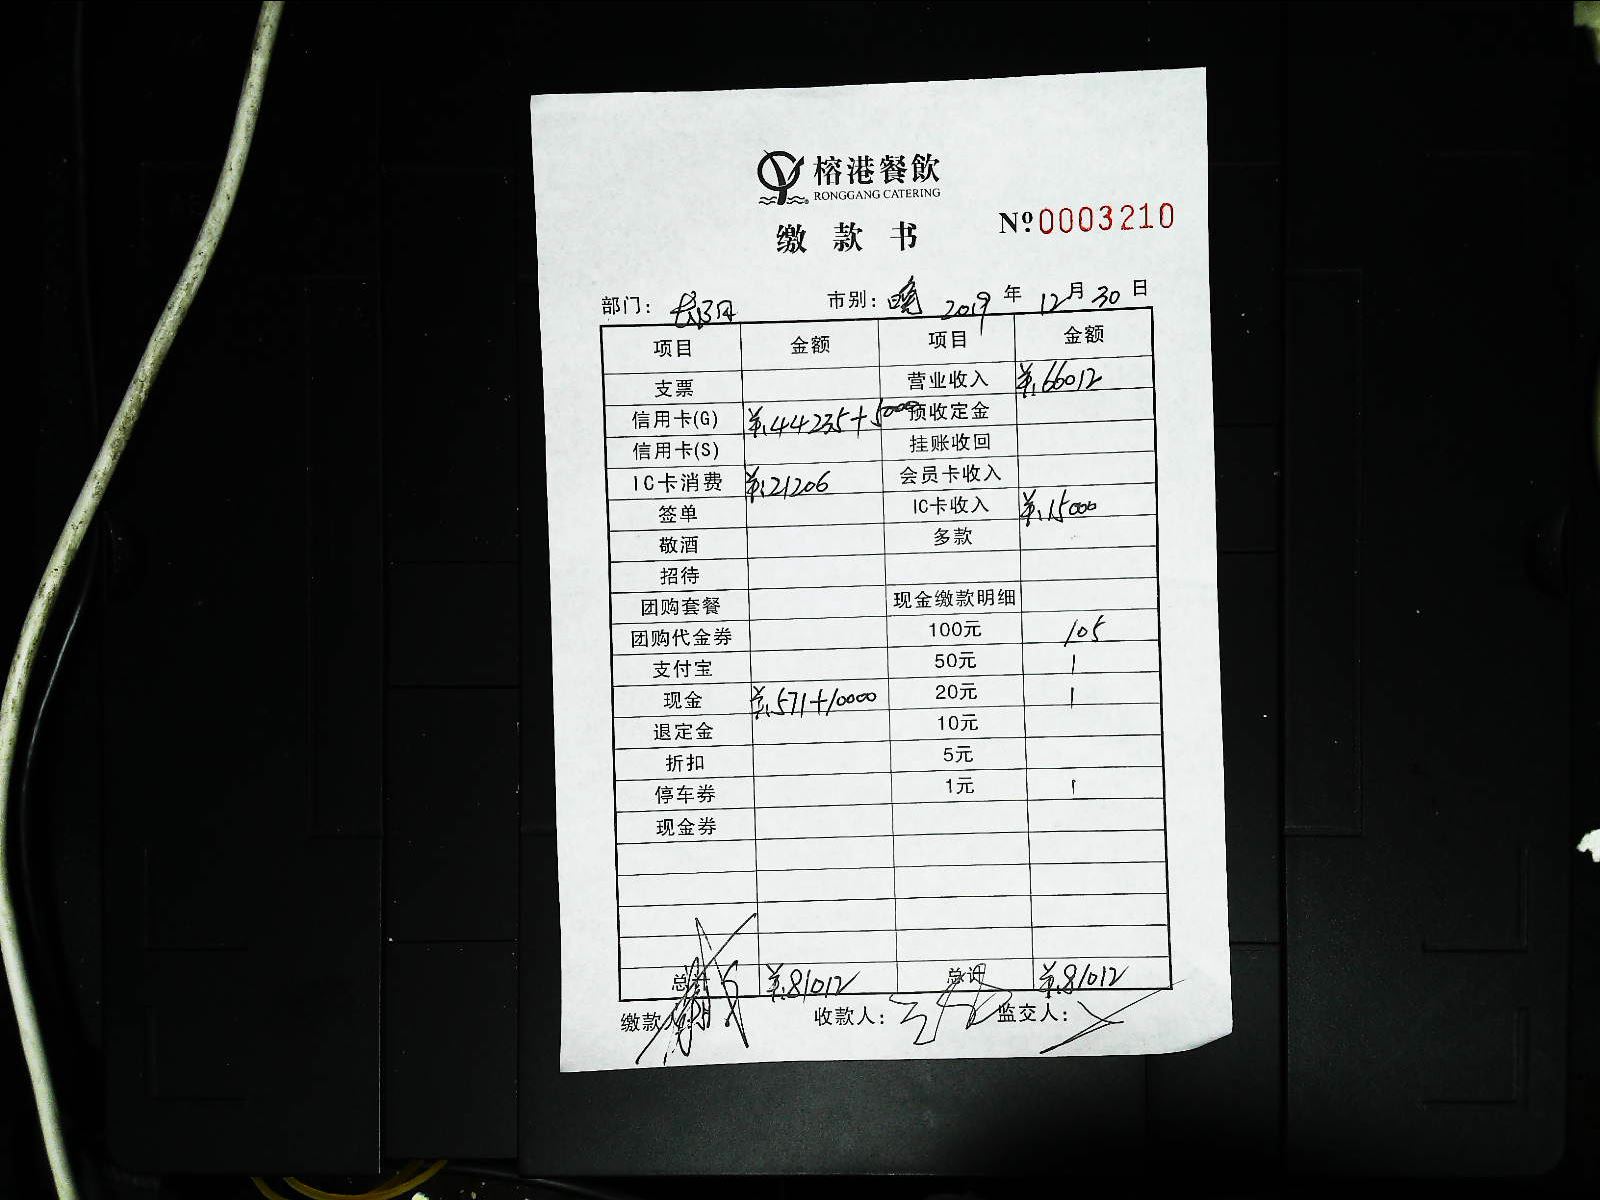 榕港餐飲
RONGGANG CATERING
缴款书
Nº 0003210
部门： 市别：晚 2019年12月30日
项目 金额 项目 金额
支票 营业收入 ¥.66012
信用卡(G) ¥.44235+5000 预收定金
信用卡(S) 挂账收回
IC卡消费 ¥.21206 会员卡收入
签单 IC卡收入 ¥.15000
敬酒 多款
招待
团购套餐 现金缴款明细
团购代金券 100元 105
支付宝 50元 1
现金 ¥.571+10000 20元 1
退定金 10元
折扣 5元
停车券 1元 1
现金券
总计 ¥.81012 总计 ¥.81012
缴款人： 收款人： 监交人：